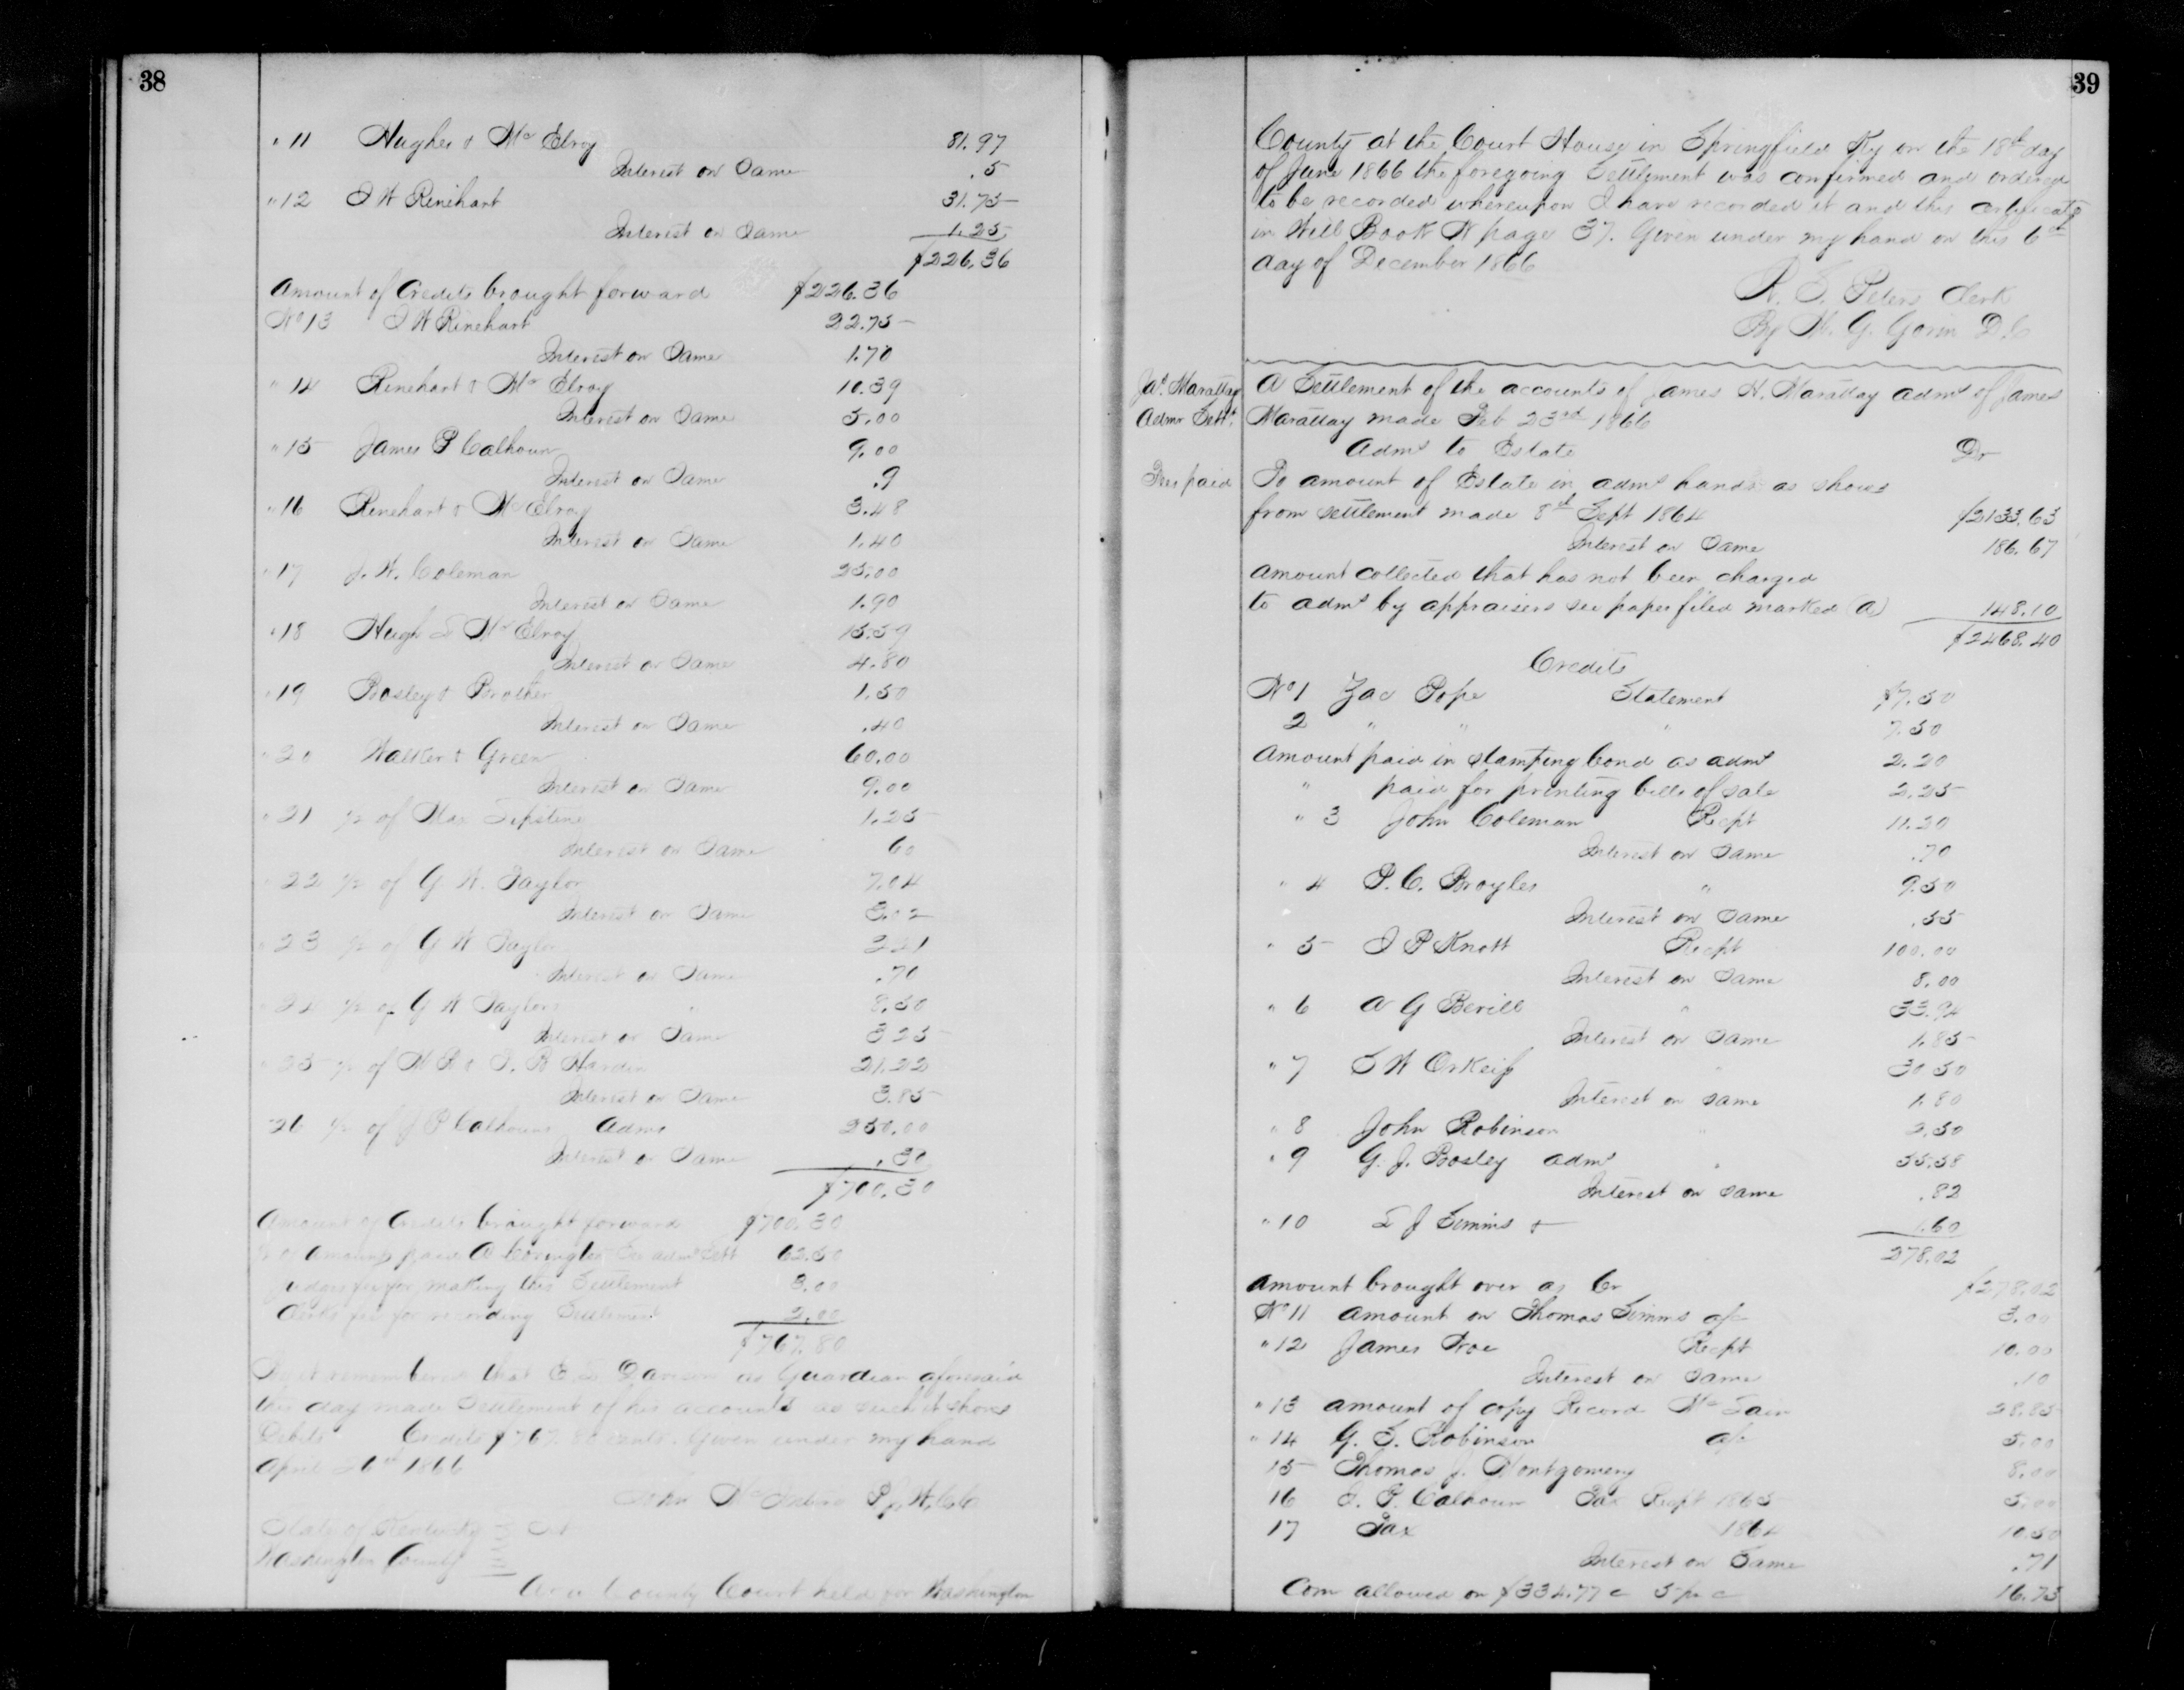 38
" 11 Hughes & Mc Elroy 81.97
Interest on Same .5
" 12 I W Rinehart 31.75
Interest on Same 1.25
$226.36
Amount of Credits brought forward $226.36
No 13 I W Rinehart 22.75
Interest on Same 1.70
" 14 Rinehart & Mc Elroy 10.39
Interest on Same 5.00
" 15 James P Calhoun 9.00
Interest on Same .9
" 16 Rinehart & Mc Elroy 3.48
Interest on Same 1.40
" 17 J. W. Coleman 25.00
Interest on Same 1.90
" 18 Hugh S Mc Elroy 15.59
Interest on Same 4.80
" 19 Bosley & Brother 1.50
Interest on Same .40
" 20 Walker & Green 60.00
Interest on Same 9.00
" 21 of 1.25
Interest on Same 60
" 22 of G W. Taylor 7.04
Interest on Same 3.02
" 23 of G W Taylor 221
Interest on Same .70
" 24 of G W Taylor 8.50
Interest on Same 325
" 25 of Hardin 21.22
Interest on Same 3.85
" 26 of J P Calhoun Admr 250.00
Interest on Same .30
$700.30
Amount of Credits brought forward $700.30
Amount paid A Covington 62.50
Judges fee for making this Settlement 3.00
Clerks fee for recording Settlement 2.00
$767.80
Be it remembered that E. L. Davison as Guardian aforesaid
this day made Settlement of his accounts as such it shows
Debits Credits $767.80 cents. Given under my hand
April 26th 1866
John P. J. W. C. C.
State of Kentucky } Sct
Washington County
At a County Court held for Washington
39
County at the Court House in Springfield Ky on the 18th day
of June 1866 the foregoing Settlement was confirmed and ordered
to be recorded whereupon I have recorded it and this certificate
in Will Book W page 37. Given under my hand on this 6th
day of December 1866
W. F. Peters Clerk
By W. G. Gorin D. C
Jas Marattay
Admr Sett.
A Settlement of the accounts of James H. Marattay admr of James
Marattay made Feb 23rd 1866
Admr to Estate Dr
Fees paid
To amount of Estate in admr hands as shows
from settlement made 8th Sept 1864 $2133.63
Interest on Same 186.67
Amount collected that has not been charged
to admr by appraisers see paper filed marked (A) 148.10
$2468.40
Credits
No 1 Zac Pope Statement $7.50
2 " " " 7.50
Amount paid in stamping bond as admr 2.20
" paid for printing bills of sale 2.25
" 3 John Coleman Recpt 11.20
Interest on Same .70
" 4 P. C. Broyles " 9.50
Interest on Same .55
" 5 I P Knott Recpt 100.00
Interest on Same 8.00
" 6 A G Berill " 33.94
Interest on Same 1.85
" 7 S W OrKeif " 30 50
Interest on same 1.80
" 8 John Robinson " 2.50
" 9 G. J. Bosley admr " 55.58
Interest on same .82
" 10 S J Simms & 1.60
278.02
Amount brought over as Cr $278.02
No 11 amount on Thomas Simms a/c 3.00
" 12 James Froe Recpt 10.00
Interest on Same .10
" 13 amount of copy Record Mc Cain 28.85
" 14 G. S. Robinson a/c 5.00
15 Thomas J. Montgomery 8.00
16 J. P. Calhoun Tax Recpt 1865 5.00
17 Tax 1864 10.50
Interest on Same .71
Com allowed on $334.77 c 5 pr c 16.73